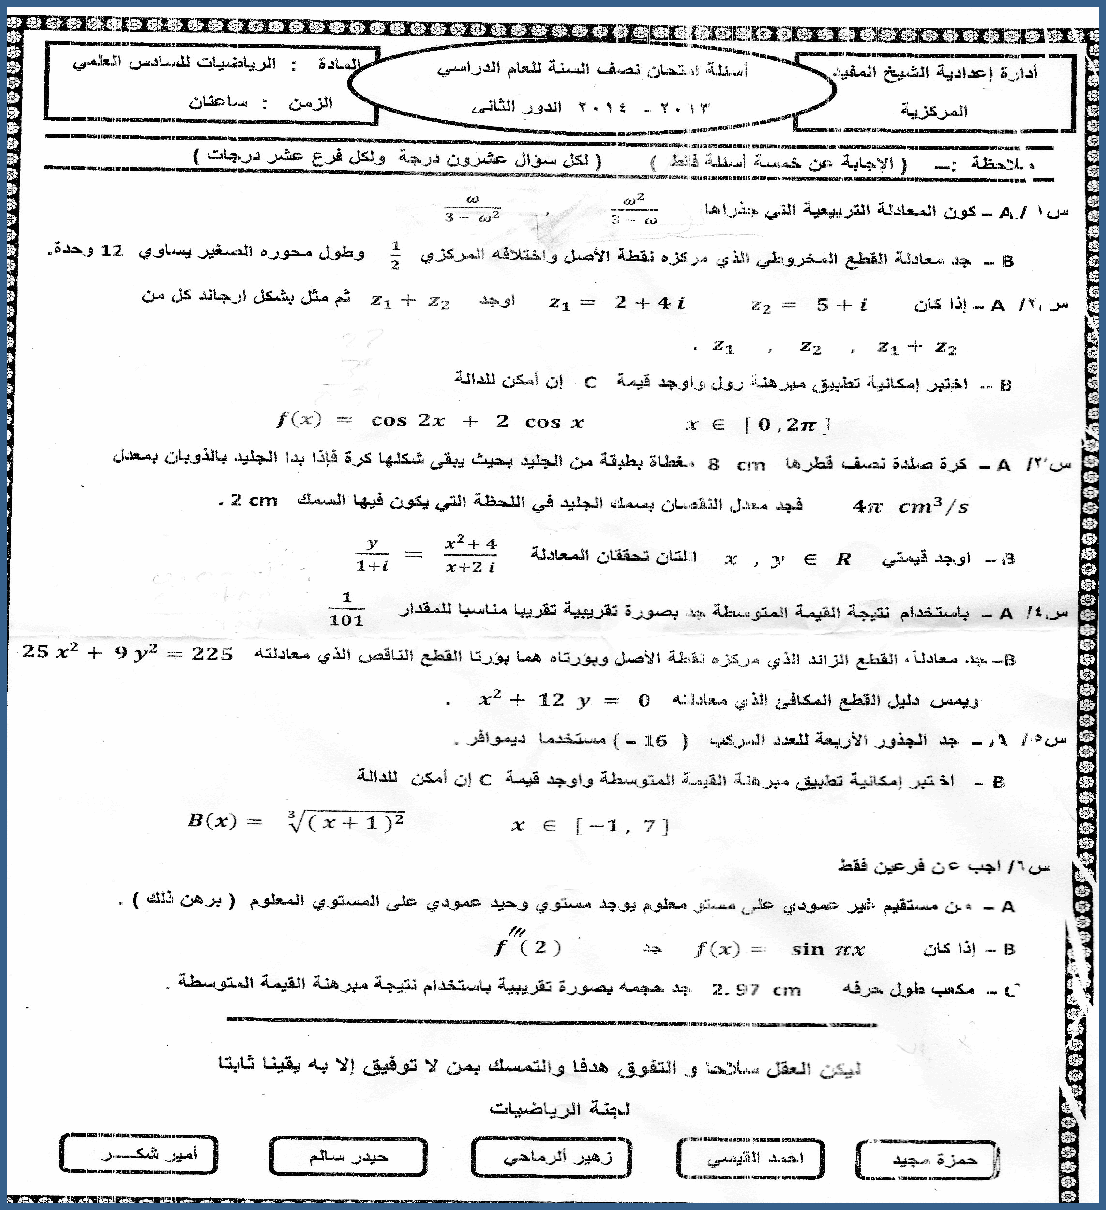 أدارة إعدادية الشيخ المفيد
المركزية
أسئلة امتحان نصف السنة للعام الدراسي
٢٠١٣ - ٢٠١٤ الدور الثاني
المادة : الرياضيات للسادس العلمي
الزمن : ساعتان
ملاحظة :– ( الاجابة عن خمسة أسئلة فقط ) ( لكل سؤال عشرون درجة ولكل فرع عشر درجات )
س١/ A – كون المعادلة التربيعية التي جذراها ω²/(3 – ω) , ω/(3 – ω²)
B – جد معادلة القطع المخروطي الذي مركزه نقطة الأصل واختلافه المركزي 1/2 وطول محوره الصغير يساوي 12 وحدة.
س٢/ A – إذا كان z₂ = 5 + i z₁ = 2 + 4 i اوجد z₁ + z₂ ثم مثل بشكل ارجاند كل من
z₁ , z₂ , z₁ + z₂ .
B – اختبر إمكانية تطبيق مبرهنة رول واوجد قيمة C إن أمكن للدالة
f(x) = cos 2x + 2 cos x x ∈ [ 0 , 2π ]
س٣/ A – كرة صلدة نصف قطرها 8 cm مغطاة بطبقة من الجليد بحيث يبقى شكلها كرة فإذا بدا الجليد بالذوبان بمعدل
4π cm³/s فجد معدل النقصان بسمك الجليد في اللحظة التي يكون فيها السمك 2 cm .
B – اوجد قيمتي x , y ∈ R اللتان تحققان المعادلة y/(1+i) = (x²+4)/(x+2 i)
س٤/ A – باستخدام نتيجة القيمة المتوسطة جد بصورة تقريبية تقريبا مناسبا للمقدار 1/101
B– جد معادلة القطع الزائد الذي مركزه نقطة الأصل وبؤرتاه هما بؤرتا القطع الناقص الذي معادلته 25 x² + 9 y² = 225
ويمس دليل القطع المكافئ الذي معادلته x² + 12 y = 0 .
س٥/ A – جد الجذور الأربعة للعدد المركب ( 16 - ) مستخدما ديموافر .
B – اختبر إمكانية تطبيق مبرهنة القيمة المتوسطة واوجد قيمة C إن أمكن للدالة
B(x) = ∛(x + 1)² x ∈ [ –1 , 7 ]
س٦/ اجب عن فرعين فقط
A – من مستقيم غير عمودي على مستو معلوم يوجد مستوي وحيد عمودي على المستوي المعلوم ( برهن ذلك ) .
B – إذا كان f(x) = sin πx جد f‴(2)
C – مكعب طول حرفه 2.97 cm جد حجمه بصورة تقريبية باستخدام نتيجة مبرهنة القيمة المتوسطة .
ليكن العقل سلاحا و التفوق هدفا والتمسك بمن لا توفيق إلا به يقينا ثابتا
لجنة الرياضيات
حمزة مجيد
احمد القيسي
زهير الرماحي
حيدر سالم
أمير شكــر